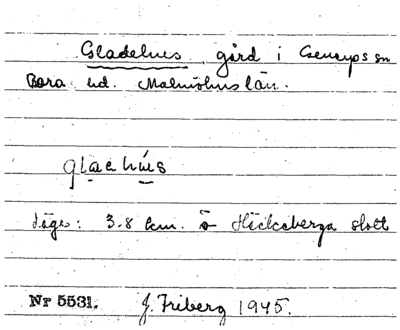 Gladehus, gård i Genarps sn
Bara hd. Malmöhus län.
glaehus
Läge: 3.8 km. ö Häckeberga slott
Nr 5531. J. Friberg 1945.